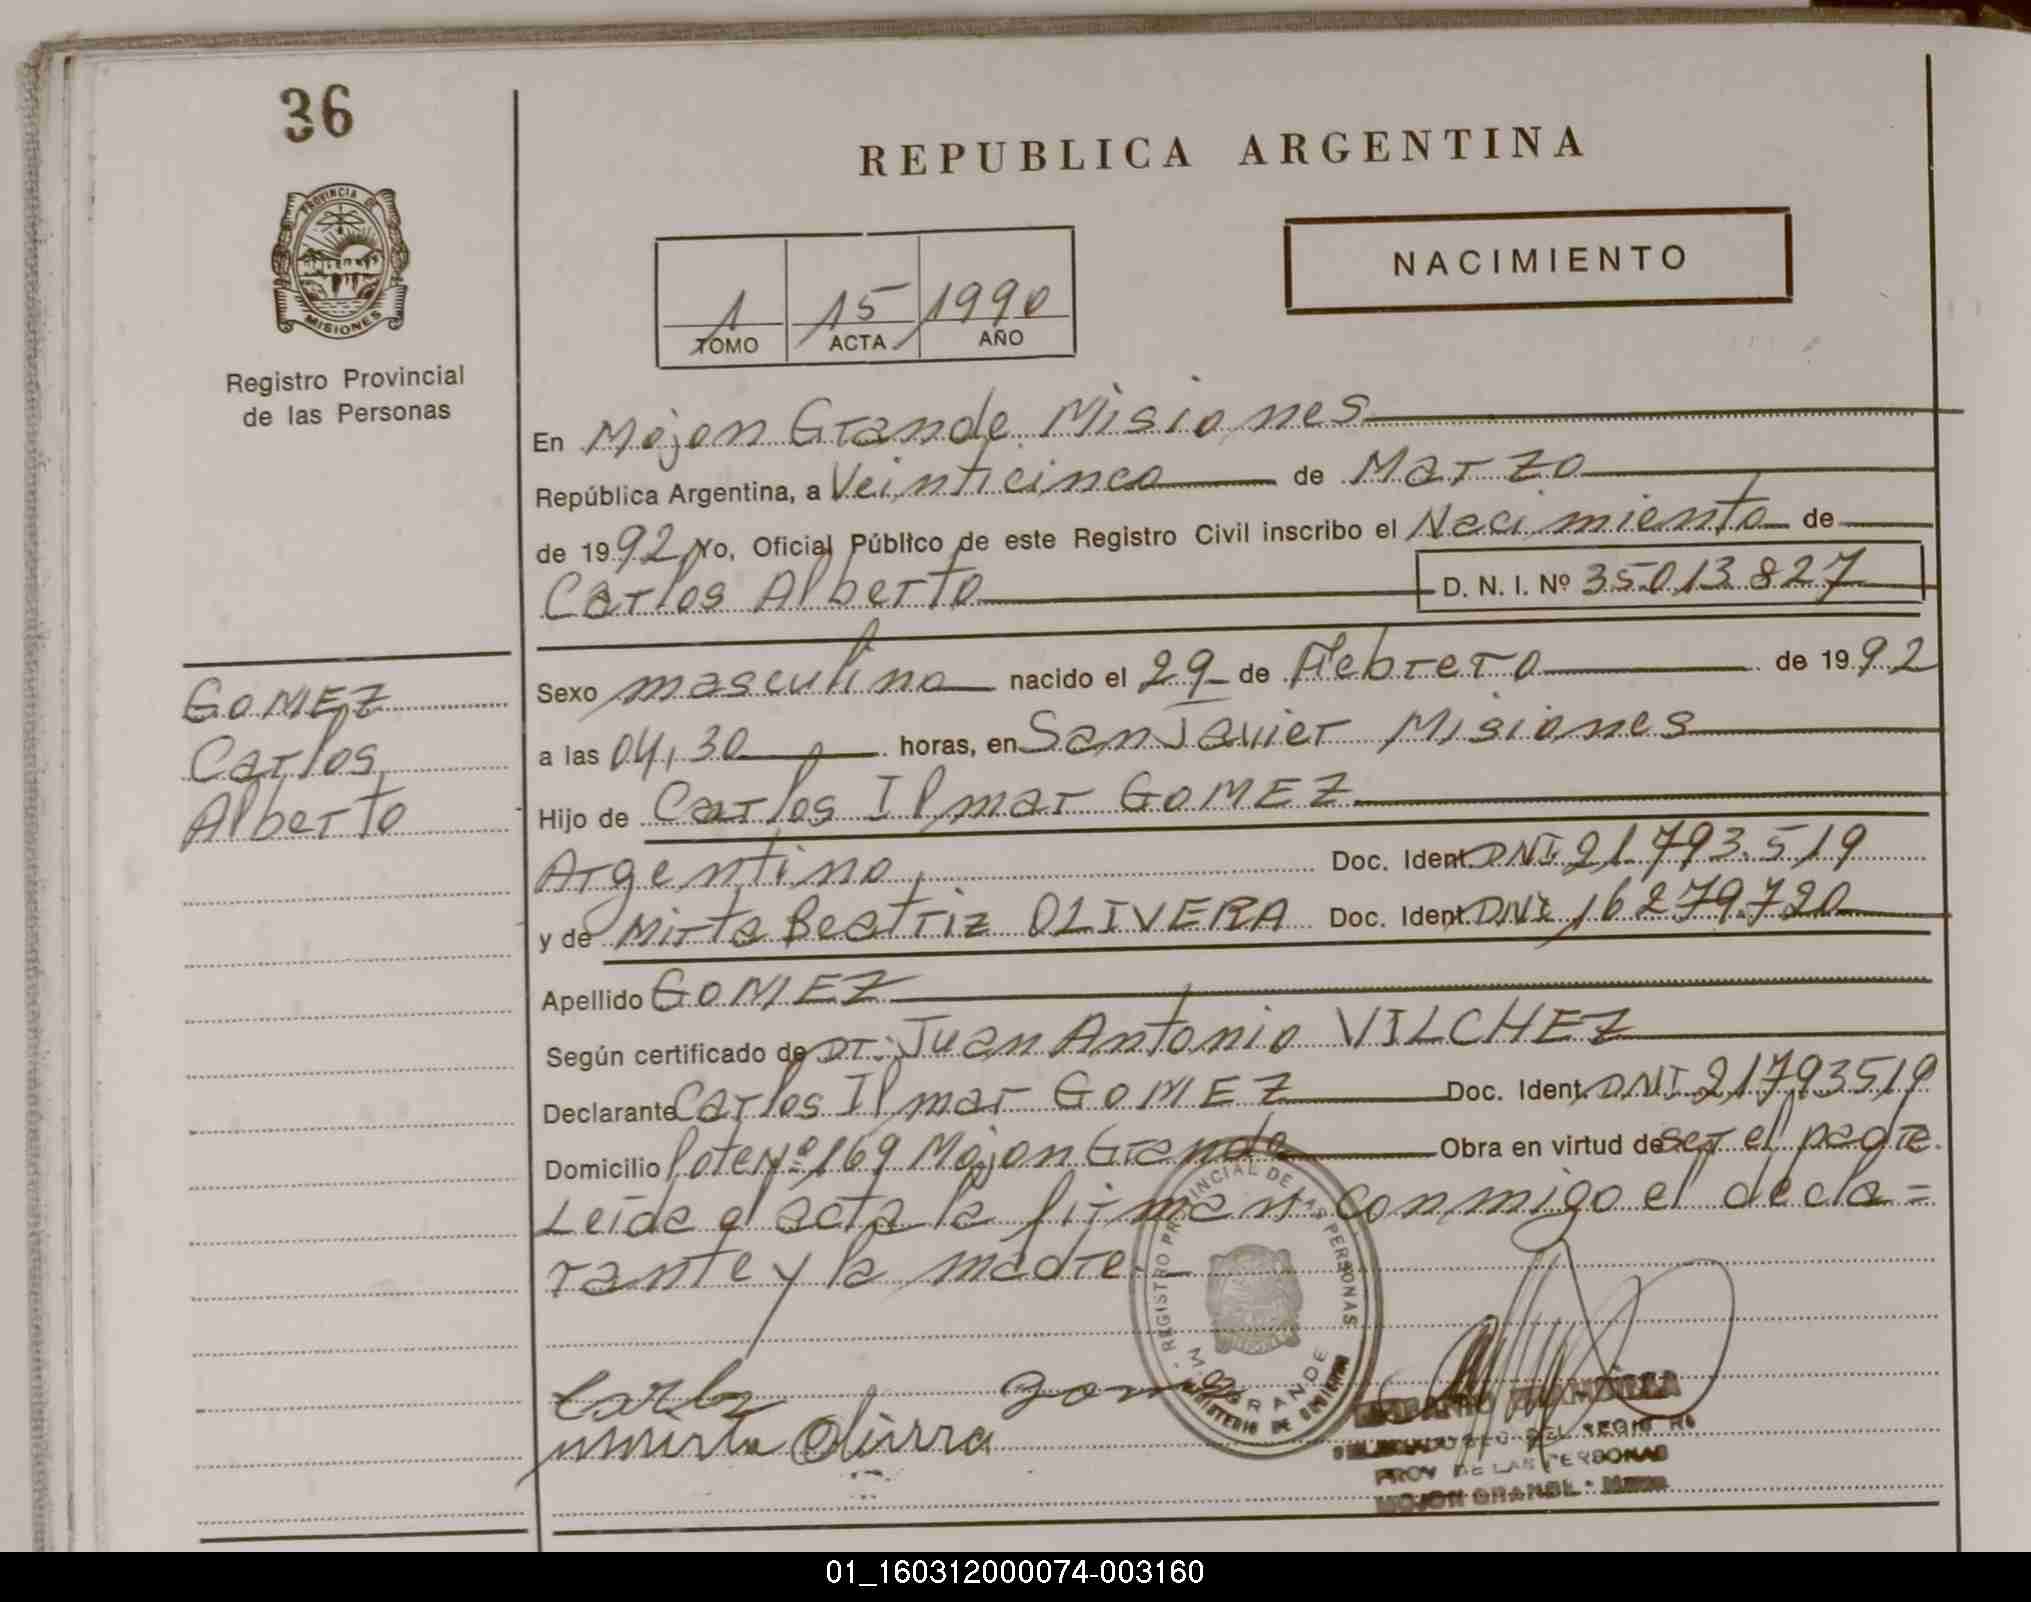 36
PROVINCIA DE
MISIONES
Registro Provincial
de las Personas
REPUBLICA ARGENTINA
NACIMIENTO
1 15 1990
TOMO ACTA AÑO
En Mojon Grande Misiones
República Argentina, a Veinticinco de Marzo
de 1992 Yo, Oficial Público de este Registro Civil inscribo el Nacimiento de
Carlos Alberto D. N. I. Nº 35013827
GOMEZ
Carlos
Alberto
Sexo masculino nacido el 29 de Febrero de 1992
a las 04,30 horas, en San Javier Misiones
Hijo de Carlos Ilmar GOMEZ
Argentino Doc. Ident. DNI 21.793.519
y de Mirta Beatriz OLIVERA Doc. Ident. DNI 16279.720
Apellido GOMEZ
Según certificado de Dr. Juan Antonio VILCHEZ
Declarante Carlos Ilmar GOMEZ Doc. Ident. DNI 21793519
Domicilio lote Nº 169 Mojon Grande Obra en virtud de ser el padre.
Leida el acta la firman conmigo el decla=
rante y la madre.
REGISTRO PROVINCIAL DE LAS PERSONAS
GRANDE
MINISTERIO DE GOBIERNO
Mirta Olivera
DEL REGISTRO
PROV DE LAS PERSONAS
MOJON GRANDE -
01_160312000074-003160